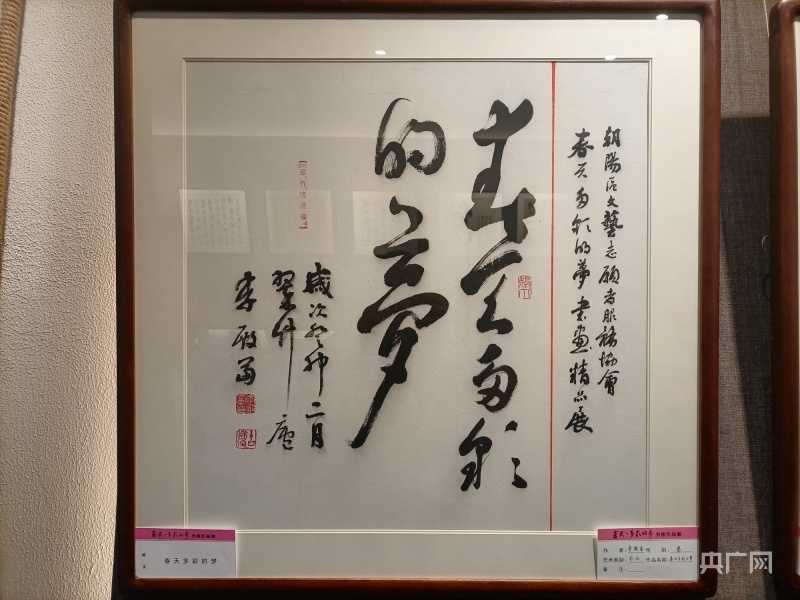 朝陽区文藝志願者服務協會
春天多彩的夢書畫精品展
春天多彩
的夢
歲次癸卯二月
翠竹廬
李啟
春天多彩的梦
书画作品展
释文
春天多彩的梦
书画作品展
作者:
性别:男
艺术类别:书法
作品名称:春天多彩的梦
备注:
央广网